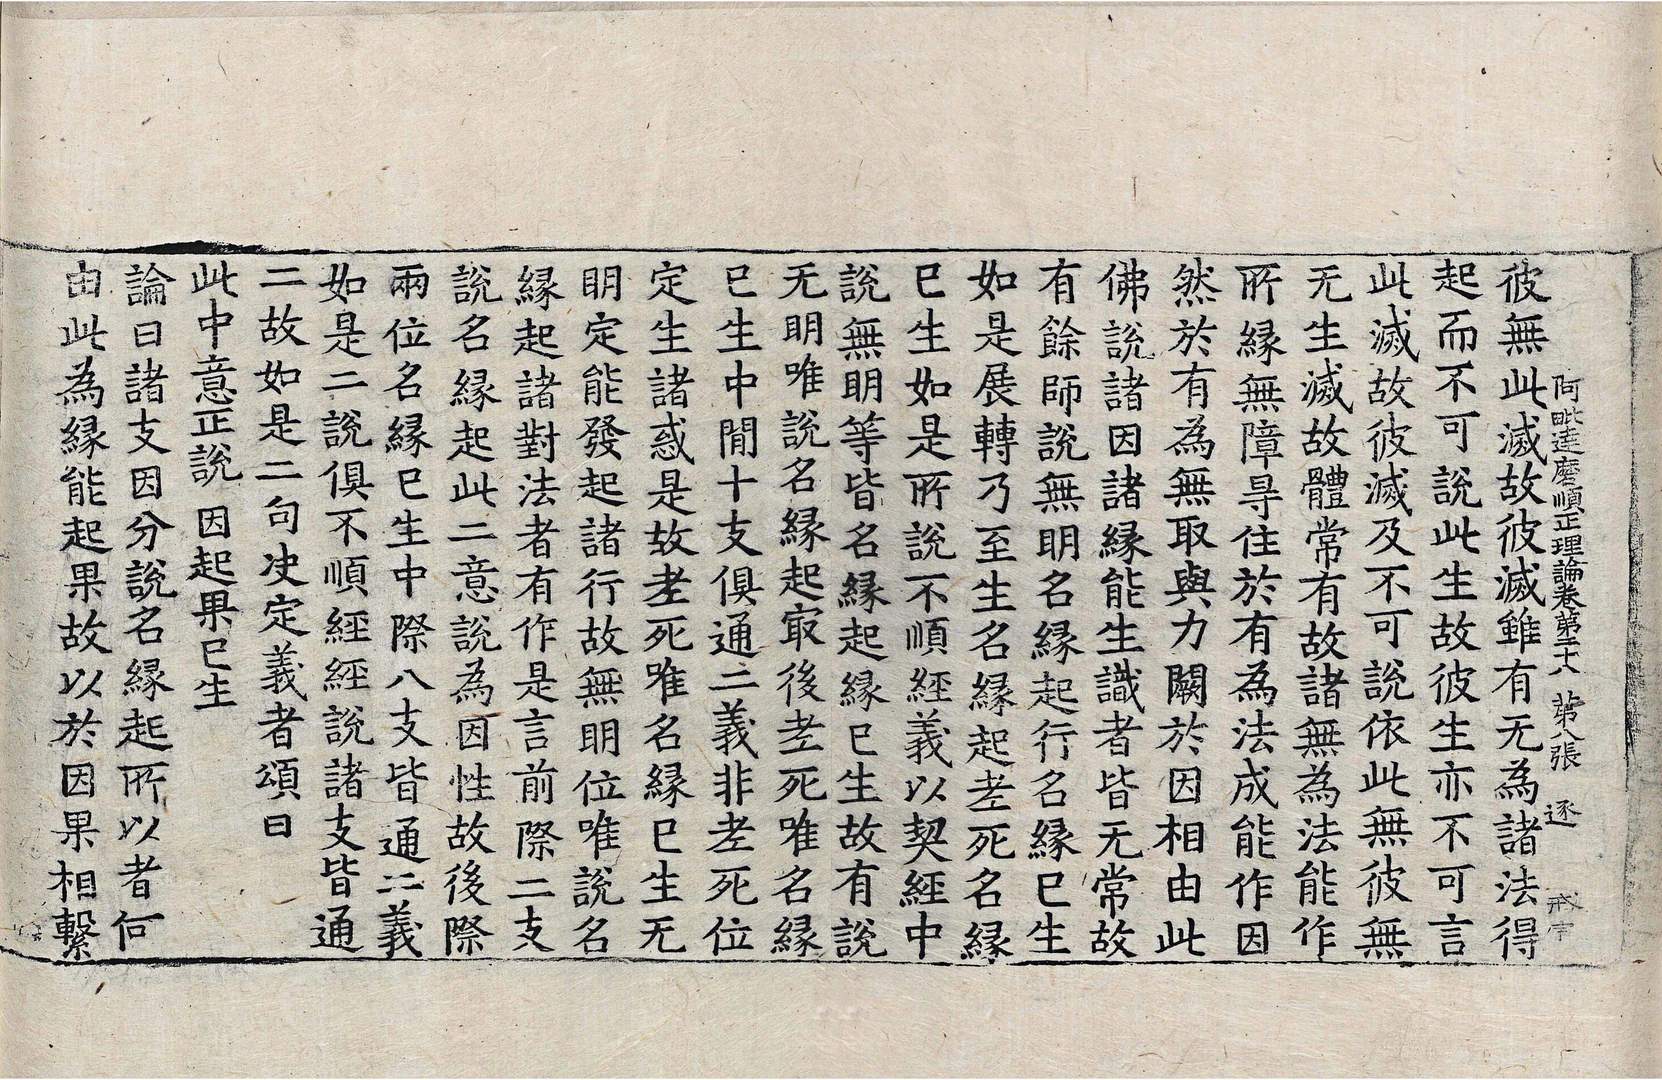 阿毗達磨順正理論卷第二十八 第八張 逐
彼無此滅故彼滅雖有无為諸法得
起而不可說此生故彼生亦不可言
此滅故彼滅及不可說依此無彼無
无生滅故體常有故諸無為法能作
所縁無障㝵住於有為法成能作因
然於有為無取與力闕於因相由此
佛說諸因諸縁能生識者皆无常故
有餘師說無明名縁起行名縁已生
如是展轉乃至生名縁起老死名縁
已生如是所說不順經義以契經中
說無明等皆名縁起縁已生故有說
无明唯說名縁起㝡後老死唯名縁
已生中間十支俱通二義非老死位
定生諸惑是故老死唯名縁已生无
明定能發起諸行故無明位唯說名
縁起諸對法者有作是言前際二支
說名縁起此二意說為因性故後際
兩位名縁已生中際八支皆通二義
如是二說俱不順經經說諸支皆通
二故如是二句決定義者頌曰
此中意正說 因起果已生
論曰諸支因分說名縁起所以者何
由此為縁能起果故以於因果相繫